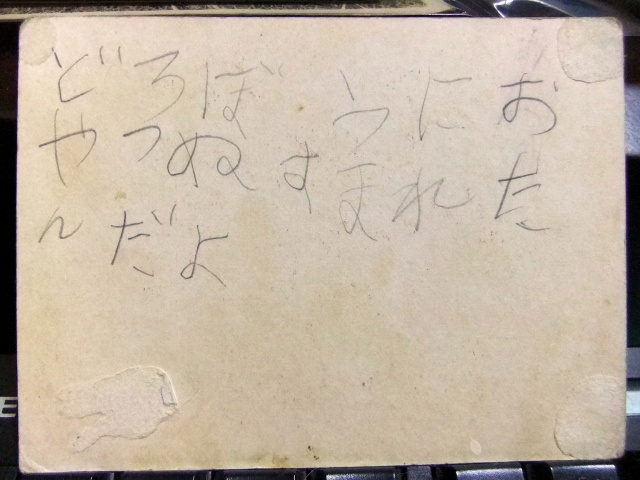 どろぼうにお
やつぬすまれた
んだよ
E